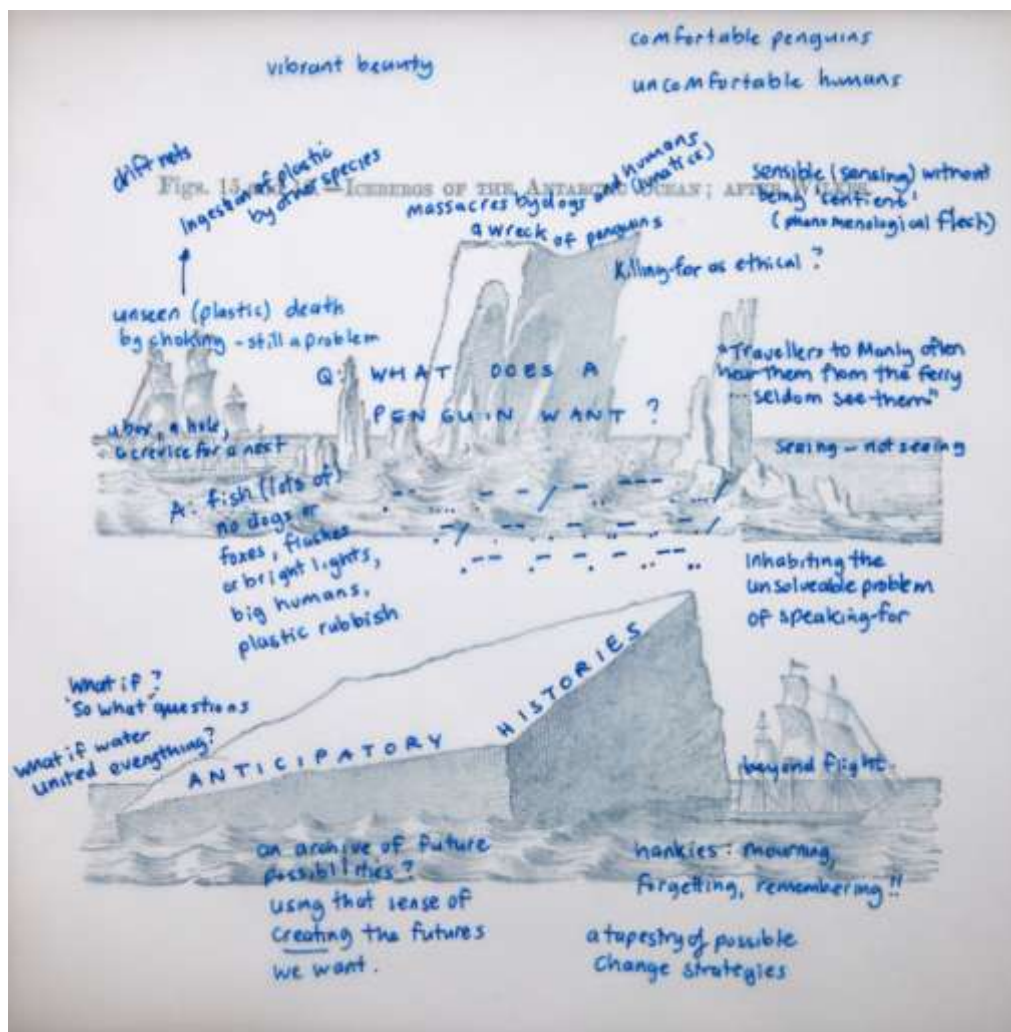 vibrant beauty
comfortable penguins
uncomfortable humans
drift nets
Ingestion of plastic
by other species
Figs. 15 —Icebergs of the Antarctic Ocean; after Wilkes.
massacres by dogs and humans
(lunatics)
a wreck of penguins
sensible (sensing) without
being 'sentient'
(phenomenological flesh)
Killing-for as ethical?
unseen (plastic) death
by choking - still a problem
Q: WHAT DOES A
PENGUIN WANT?
"Travellers to Manly often
hear them from the ferry
... seldom see them"
seeing - not seeing
a box, a hole,
a crevice for a nest
A: fish (lots of)
no dogs or
foxes, flashes
or bright lights,
big humans,
plastic rubbish
Inhabiting the
unsolveable problem
of speaking-for
What if?
'So what' questions
What if water
united everything?
ANTICIPATORY HISTORIES
beyond flight.
an archive of future
possiblities?
using that sense of
creating the futures
we want.
hankies: mourning,
forgetting, remembering!!
a tapestry of possible
Change strategies